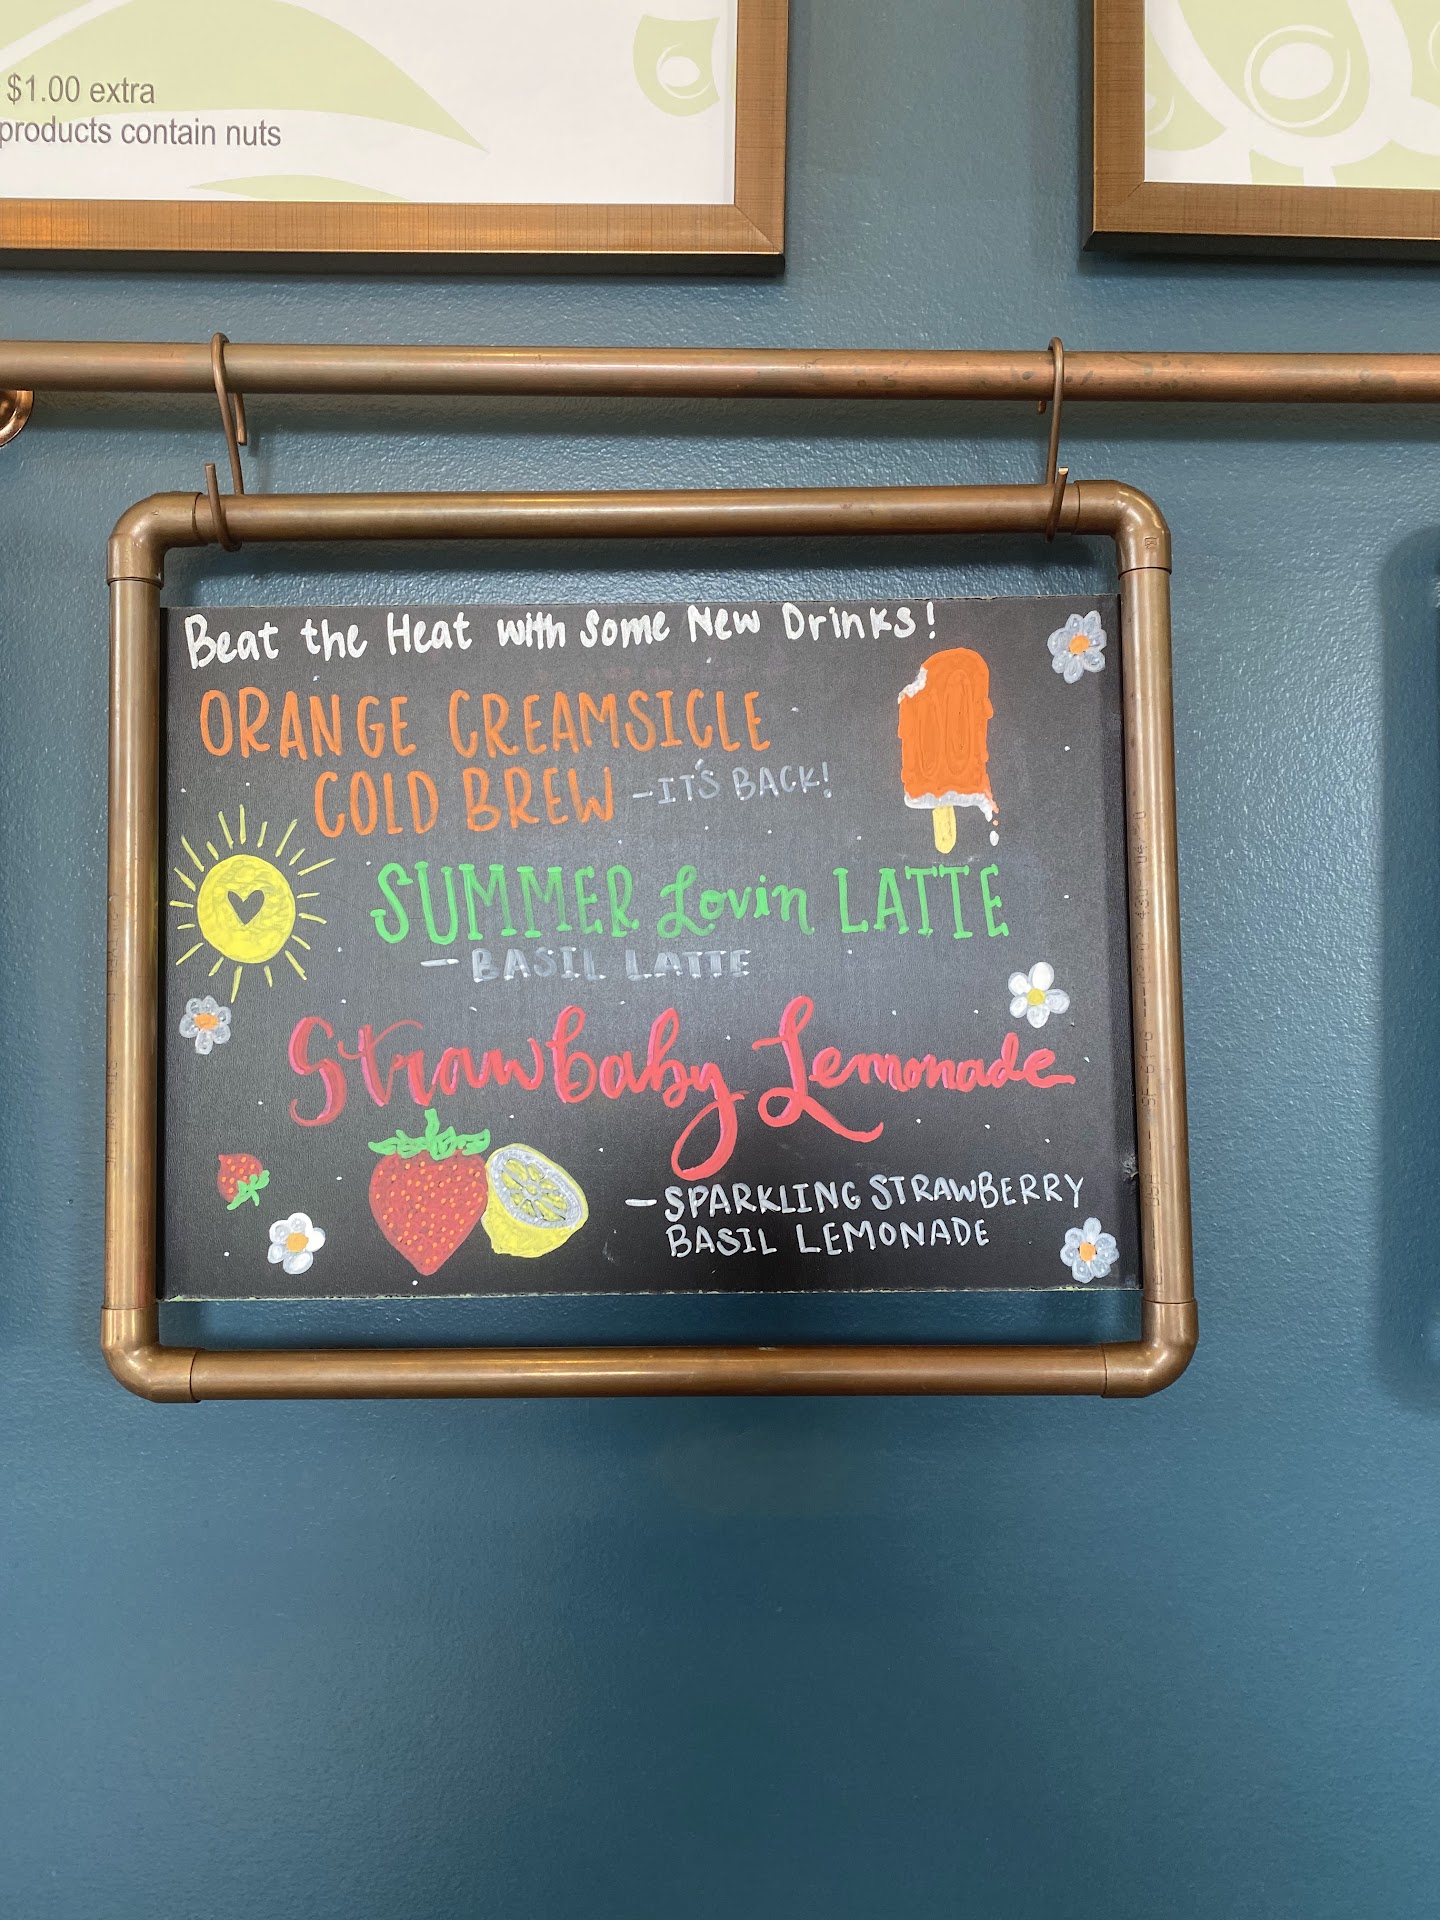 $1.00 extra
products contain nuts
Beat the Heat with Some New Drinks!
ORANGE CREAMSICLE
COLD BREW -IT'S BACK!
SUMMER Lovin LATTE
- BASIL LATTE
Strawbaby Lemonade
- SPARKLING STRAWBERRY
BASIL LEMONADE